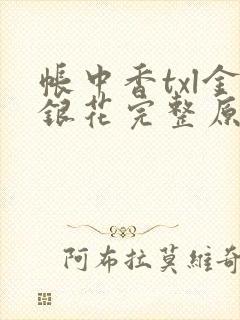 帳中香txl金
銀花完整原
阿布拉莫維奇